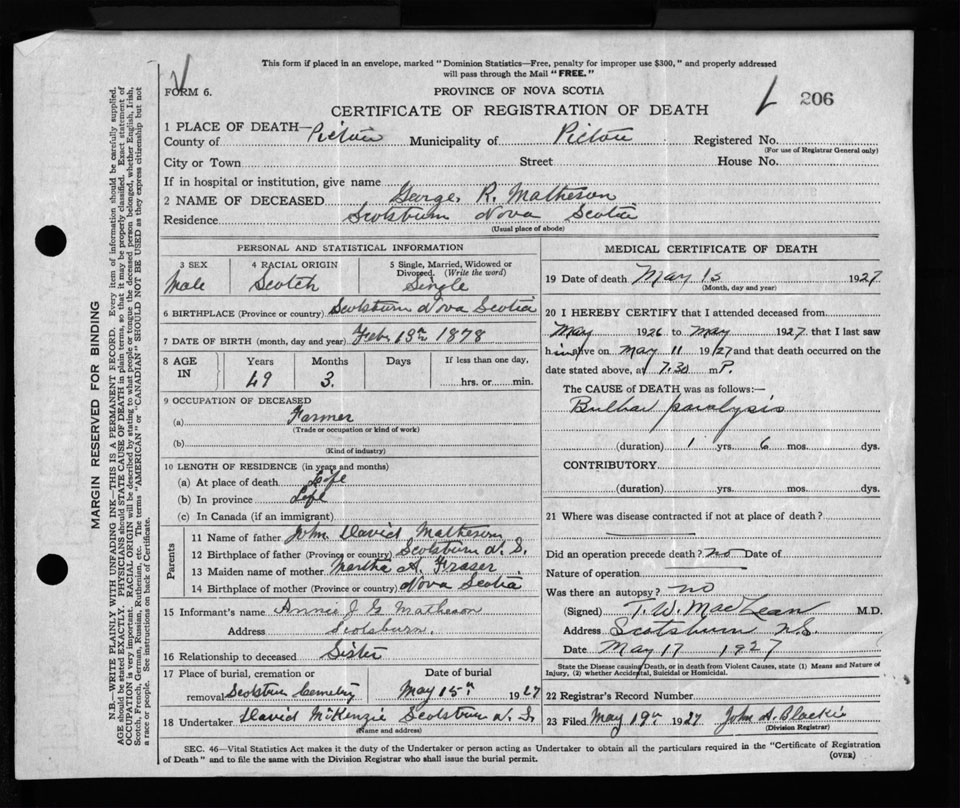 This form if placed in an envelope, marked "Dominion Statistics—Free, penalty for improper use $300," and properly addressed
will pass through the Mail "FREE."
FORM 6.
PROVINCE OF NOVA SCOTIA
CERTIFICATE OF REGISTRATION OF DEATH
206
1 PLACE OF DEATH—
County of Pictou Municipality of Pictou Registered No.
(For use of Registrar General only)
City or Town Street House No.
If in hospital or institution, give name
2 NAME OF DECEASED George R. Matheson
Residence Scotsburn Nova Scotia
(Usual place of abode)
PERSONAL AND STATISTICAL INFORMATION
3 SEX 4 RACIAL ORIGIN 5 Single, Married, Widowed or
Divorced. (Write the word)
Male Scotch Single
6 BIRTHPLACE (Province or country) Scotsburn Nova Scotia
7 DATE OF BIRTH (month, day and year) Feb. 13th 1878
8 AGE IN Years Months Days If less than one day,
49 3. hrs. or min.
9 OCCUPATION OF DECEASED
(a) Farmer
(Trade or occupation or kind of work)
(b)
(Kind of industry)
10 LENGTH OF RESIDENCE (in years and months)
(a) At place of death Life
(b) In province Life
(c) In Canada (if an immigrant)
Parents
11 Name of father John David Matheson
12 Birthplace of father (Province or country) Scotsburn N. S.
13 Maiden name of mother Martha A. Fraser
14 Birthplace of mother (Province or country) Nova Scotia
15 Informant's name Annie J G Matheson
Address Scotsburn.
16 Relationship to deceased Sister
17 Place of burial, cremation or Date of burial
removal Scotsburn Cemetery May 15th 1927
18 Undertaker David McKenzie Scotsburn N. S.
(Name and address)
MEDICAL CERTIFICATE OF DEATH
19 Date of death May 13 1927
(Month, day and year)
20 I HEREBY CERTIFY that I attended deceased from
May 1926 to May 1927 that I last saw
him alive on May 11 1927 and that death occurred on the
date stated above, at 7.30 m P.
The CAUSE of DEATH was as follows:—
Bulbar paralysis
(duration) 1 yrs. 6 mos. dys.
CONTRIBUTORY
(duration) yrs. mos. dys.
21 Where was disease contracted if not at place of death?
Did an operation precede death? no Date of
Nature of operation
Was there an autopsy? no
(Signed) T. W. MacLean M.D.
Address Scotsburn N.S.
Date May 17 1927
State the Disease causing Death, or in death from Violent Causes, state (1) Means and Nature of
Injury, (2) whether Accidental, Suicidal or Homicidal.
22 Registrar's Record Number
23 Filed May 19th 1927 John A. Blackie
(Division Registrar)
SEC. 46—Vital Statistics Act makes it the duty of the Undertaker or person acting as Undertaker to obtain all the particulars required in the "Certificate of Registration
of Death" and to file the same with the Division Registrar who shall issue the burial permit. (OVER)
MARGIN RESERVED FOR BINDING
N.B.—WRITE PLAINLY WITH UNFADING INK—THIS IS A PERMANENT RECORD. Every item of information should be carefully supplied.
AGE should be stated EXACTLY. PHYSICIANS should STATE CAUSE OF DEATH in plain terms, so that it may be properly classified. Exact statement of
OCCUPATION is very important. RACIAL ORIGIN will be described by stating to what people or tongue the deceased person belonged, whether English, Irish,
Scotch, French, German, Russian, Ruthenian, etc. The terms "AMERICAN" or "CANADIAN" SHOULD NOT BE USED as they express citizenship but not
a race or people. See instructions on back of Certificate.